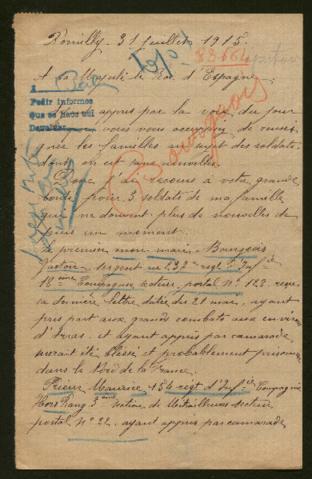 Romilly - 31 juillet 1915.
83664
A sa Majesté le Roi d'Espagne
A
Pedir informes
que se haya
Devolver
appris par la voix du jour
vous vous occupez de rensei
gner les familles au sujet des soldats
dont on est sans nouvelles
Bourgeois
Donc j'ai recours à votre grande
bonté pour 3 soldats de ma famille
qui ne donnent plus de nouvelles de
puis un moment.
Le premier mon mari Bourgeois
Victor Sergent au 32me regt d'Infie
18me Compagnie secteur postal No 122 reçu
sa dernière lettre datée du 21 mai, ayant
pris part aux grands combats aux environ
d'Arras, et ayant appris par camarade
aurait été blessé et probablement prisonnier
dans le Nord de la France.
Prieur Maurice 154 regt d'Infie Compagnie
Hors Rang 3me section de Mitrailleuses secteur
postal No 22. ayant appris par camarade